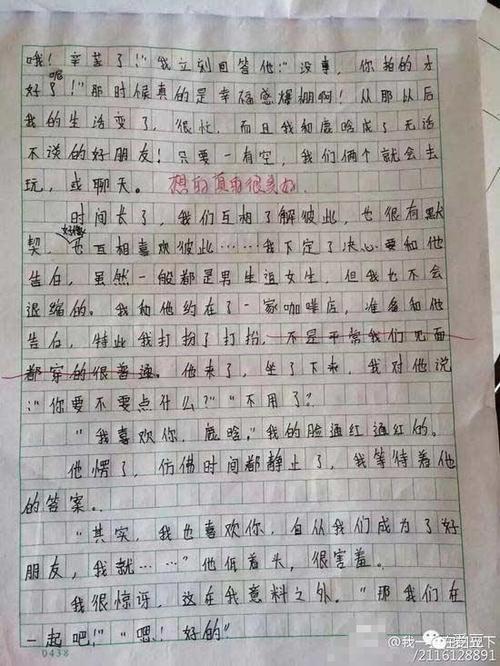 哦！辛苦了！”我立刻回答他：“没事，你拍的才
好呢！”那时候真的是幸福感爆棚啊！从那以后
我的生活变了，很忙，而且我和鹿晗成了无话
不说的好朋友！只要一有空，我们俩个就会去
玩，或聊天。 想的真的很美好
时间长了，我们互相了解彼此，也很有默
契，好像也互相喜欢彼此……我下定了决心要和他
告白，虽然一般都是男生追女生，但我也不会
退缩的。我和他约在了一家咖啡店，准备和他
告白，特此我打扮了打扮，不是平常我们见面
都穿的很普通。他来了，坐了下来，我对他说
：“你要不要点什么？”“不用了？
“我喜欢你，鹿晗。”我的脸通红通红的。
他愣了，仿佛时间都静止了，我等待着他
的答案。
“其实，我也喜欢你，自从我们成为了好
朋友，我就……”他低着头，很害羞。
我很惊讶，这在我意料之外。“那我们在
一起吧！”“嗯！好的”
0438
@我一
在爱豆下
/2116128891